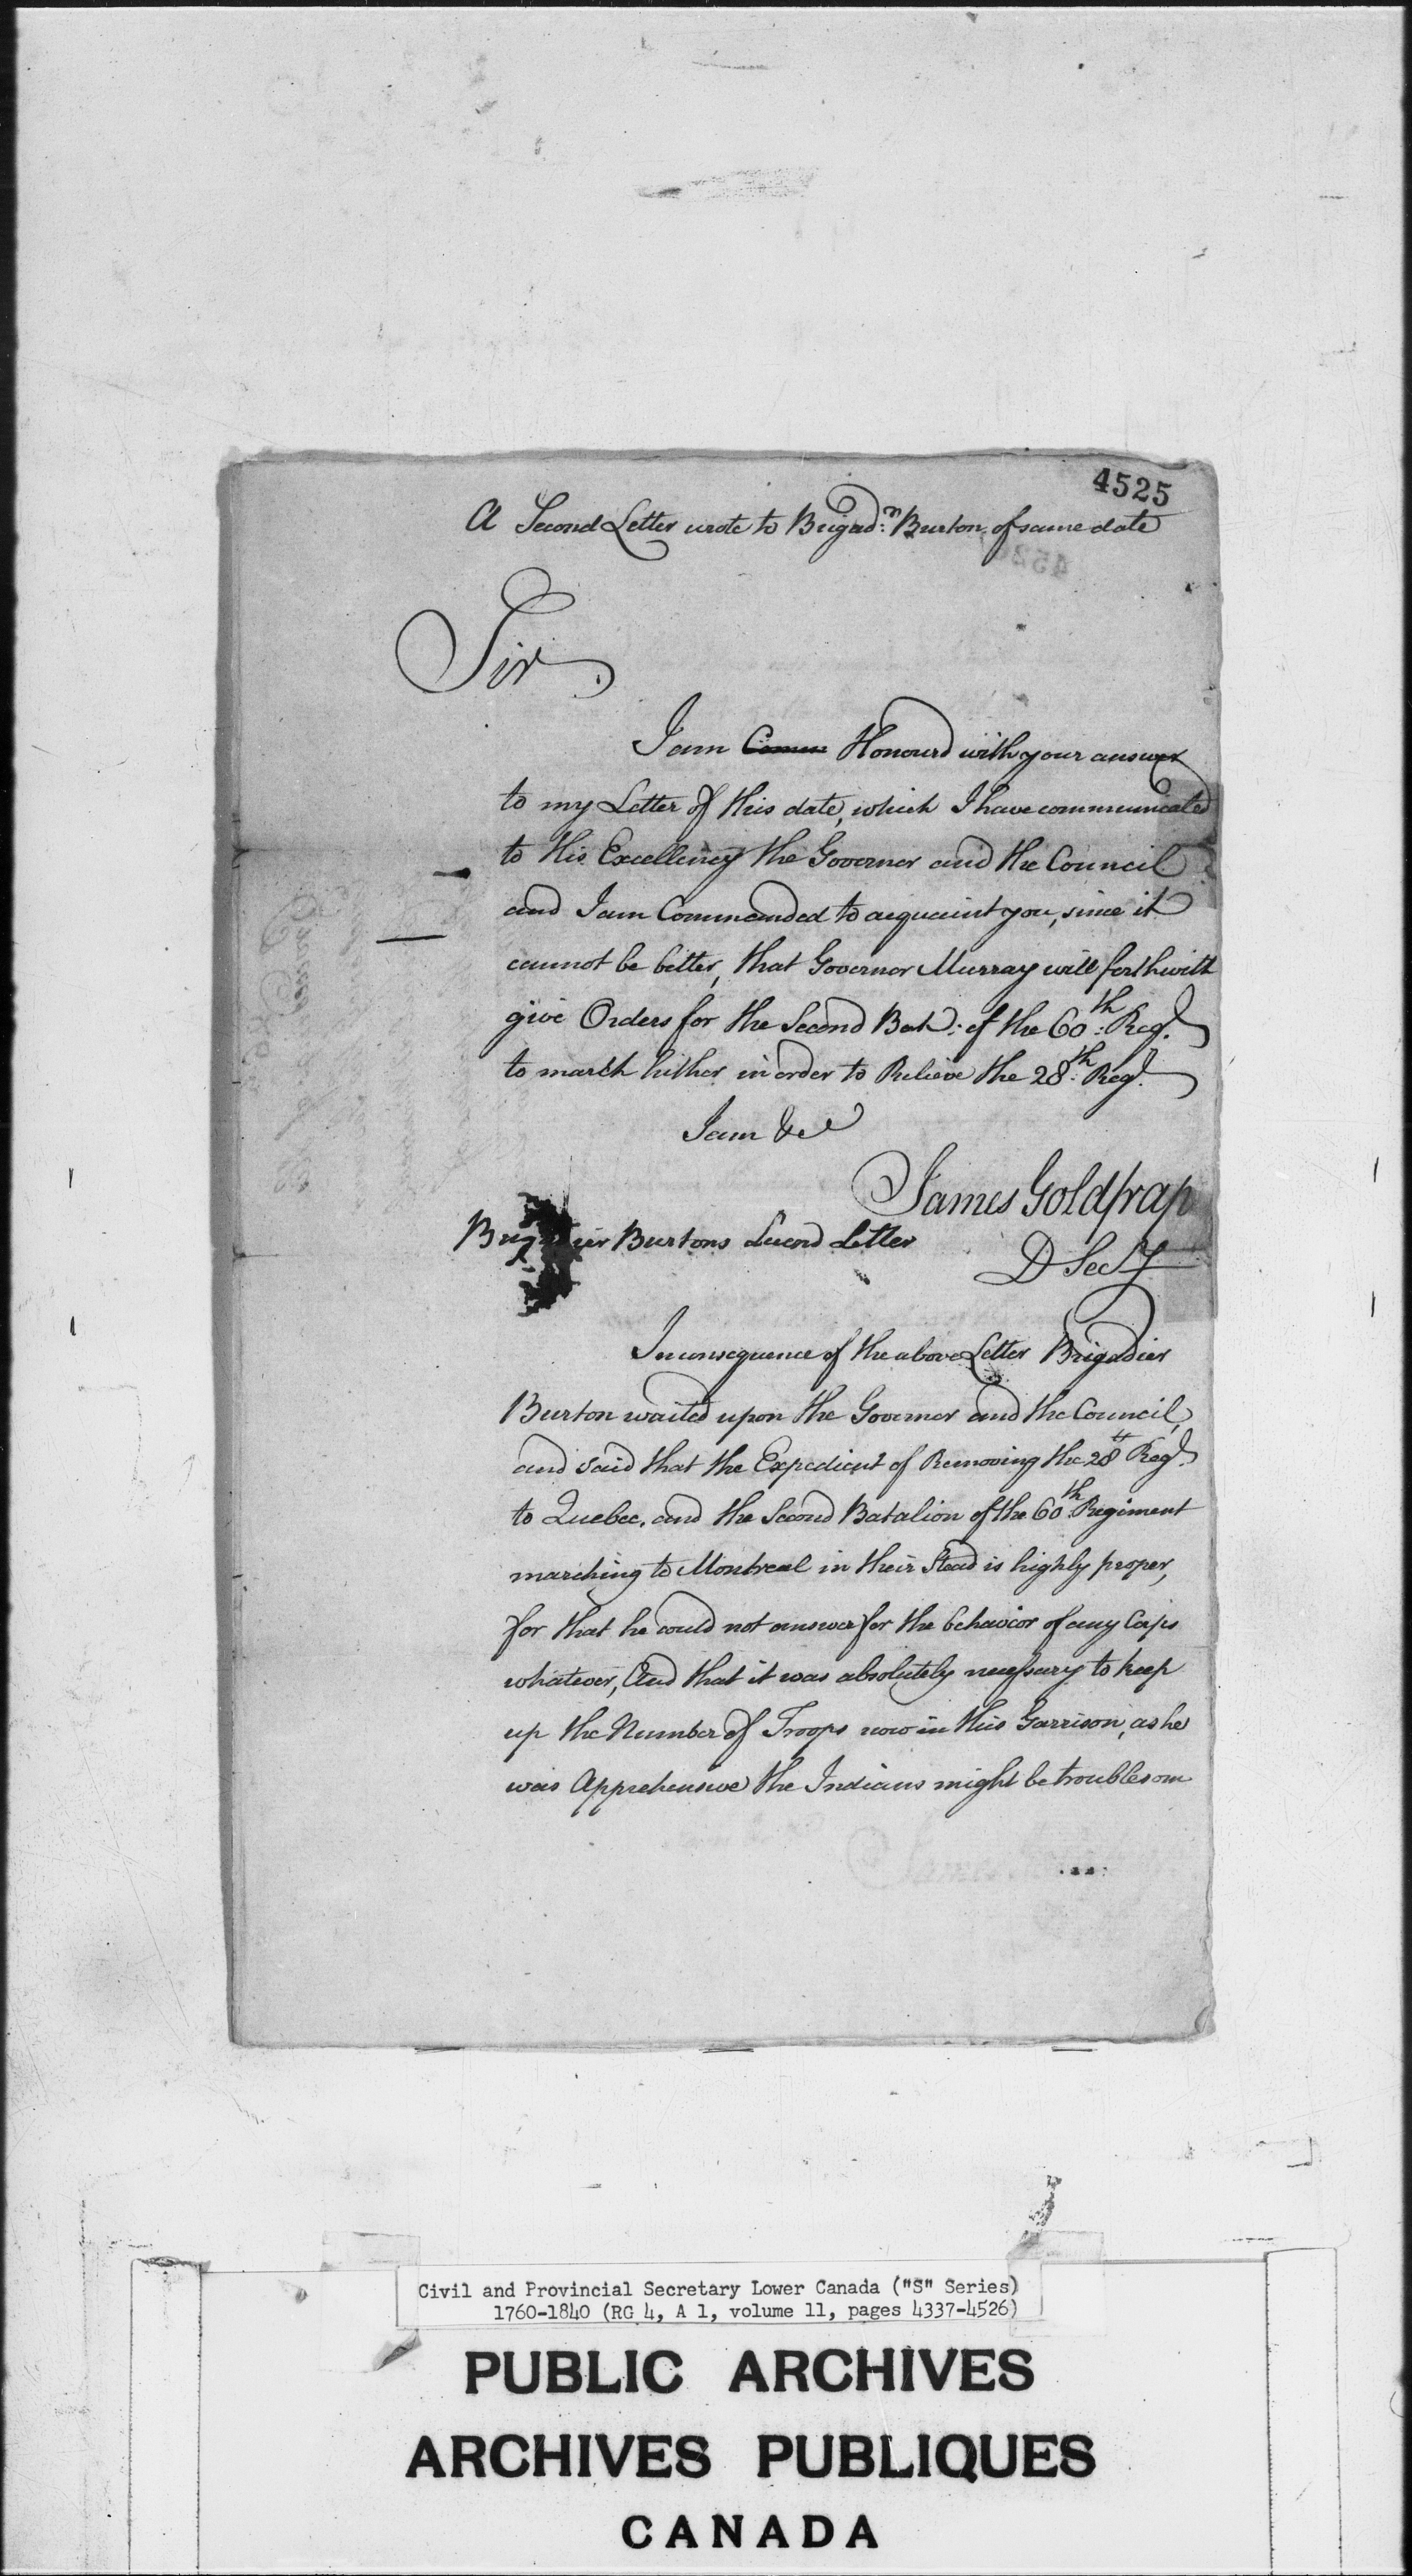 4525
A Second Letter wrote to Brigad:r Burton of same date
Sir
I am Honourd with your answer
to my Letter of this date, which I have communicated
to His Excellency the Governor and the Council
and I am Commanded to acquaint you, since it
cannot be better, that Governor Murray will forthwith
give Orders for the Second Bat: of the 60:th Regt.
to march hither in order to Relieve the 28:th Regt.
I am &c
James Goldfrap
D Secy
Burtons Second Letter
In consequence of the above Letter Brigadier
Burton waited upon the Governor and the Council,
and said that the Expedient of Removing the 28th Regt.
to Quebec, and the Second Batalion of the 60th Regiment
marching to Montreal in their Stead is highly proper,
for that he could not answer for the behavior of any Corps
whatever, And that it was absolutely necessary to keep
up the Number of Troops now in this Garrison, as he
was Apprehensive the Indians might be troublesom
Civil and Provincial Secretary Lower Canada ("S" Series)
1760-1840 (RG 4, A 1, volume 11, pages 4337-4526)
PUBLIC ARCHIVES
ARCHIVES PUBLIQUES
CANADA